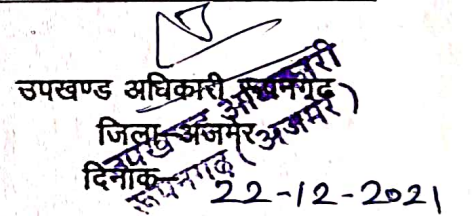 उपखण्ड अधिकारी रूपनगढ
जिला-अजमेर
दिनांक- 22-12-2021
उपखण्ड अधिकारी
रूपनगढ़ (अजमेर)